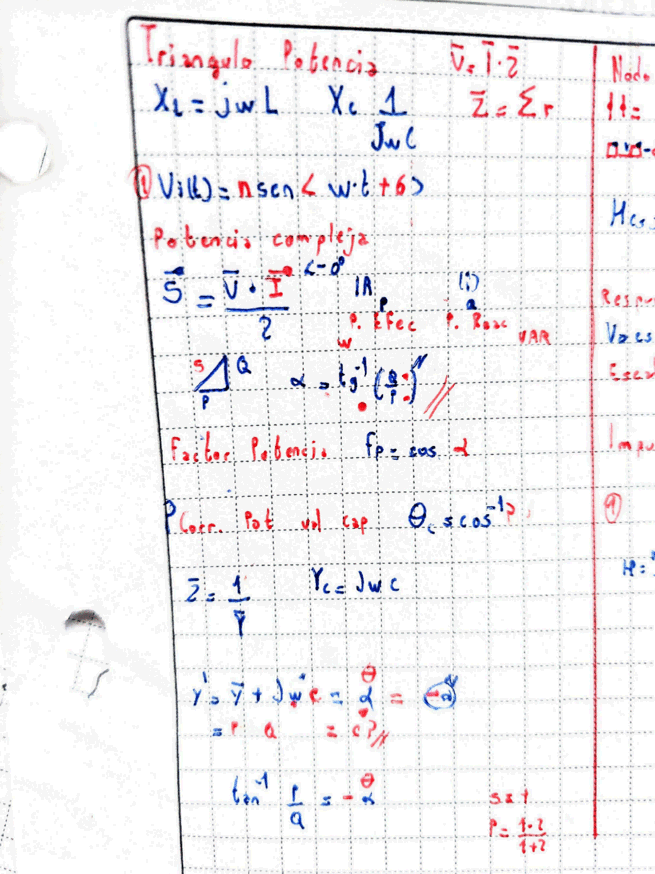 Triangulo Potencia V̄ = Ī · Z̄
XL = jwL Xc 1/JwC Z̄ = Σr
① Vi(t) = n sen < w·t + 6 >
Potencia compleja
S = V̄ · Ī / 2 <-0°
IR P (i) Q
P. Efec P. Reac
W VAR
S Q P α = tg⁻¹ (Q/P)
Factor Potencia fp = cos α
P Corr. Pot val cap θc = cos⁻¹ P
Z̄ = 1/Ȳ Yc = Jwc
Y' = Ȳ + Jwc = α θ = -α
= P Q = c?
tan⁻¹ P/Q = -α θ
s x t
P = 1·2/1+2
Nodo
Vo
Impu
①